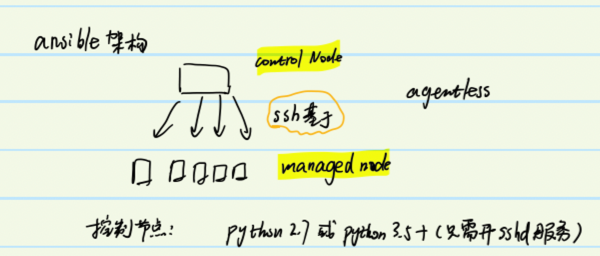 ansible 架构
control Node
agentless
ssh 基于
managed node
控制节点: python 2.7 或 python 3.5+ (只需开 sshd 服务)